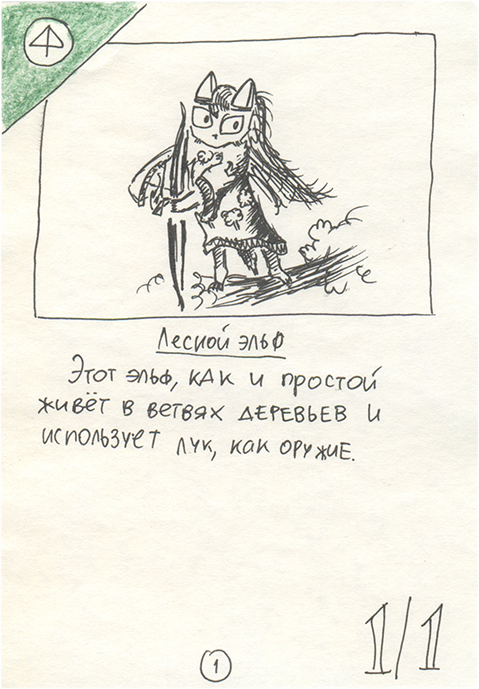 Лесной эльф
Этот эльф, как и простой
живёт в ветвях деревьев и
использует лук, как оружие.
1/1
1